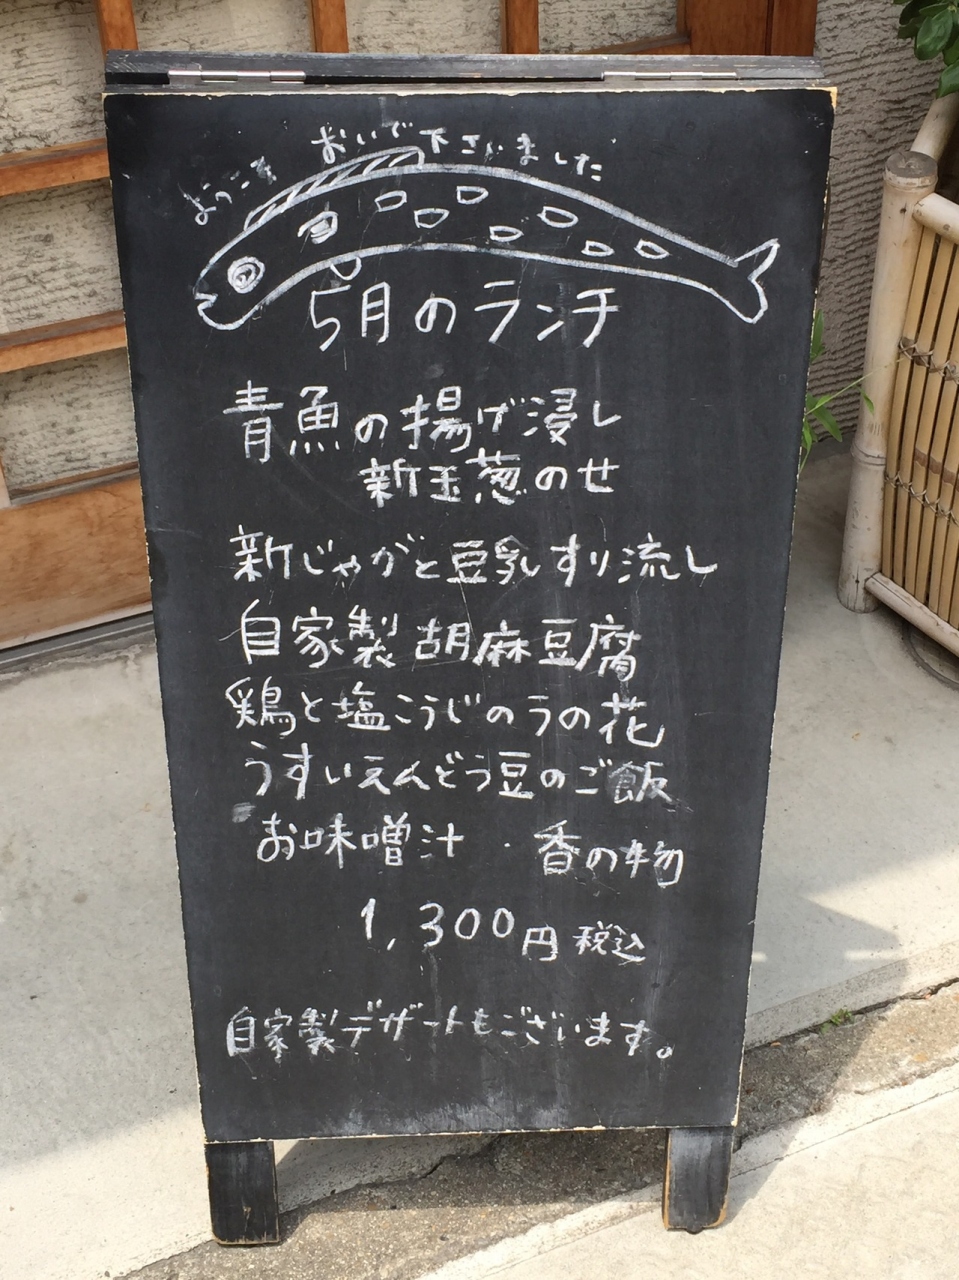 ようこそ おいで下さいました
5月のランチ
青魚の揚げ浸し
新玉葱のせ
新じゃがと豆乳すり流し
自家製胡麻豆腐
鶏と塩こうじのうの花
うすいえんどう豆のご飯
お味噌汁・香の物
1,300円 税込
自家製デザートもございます。